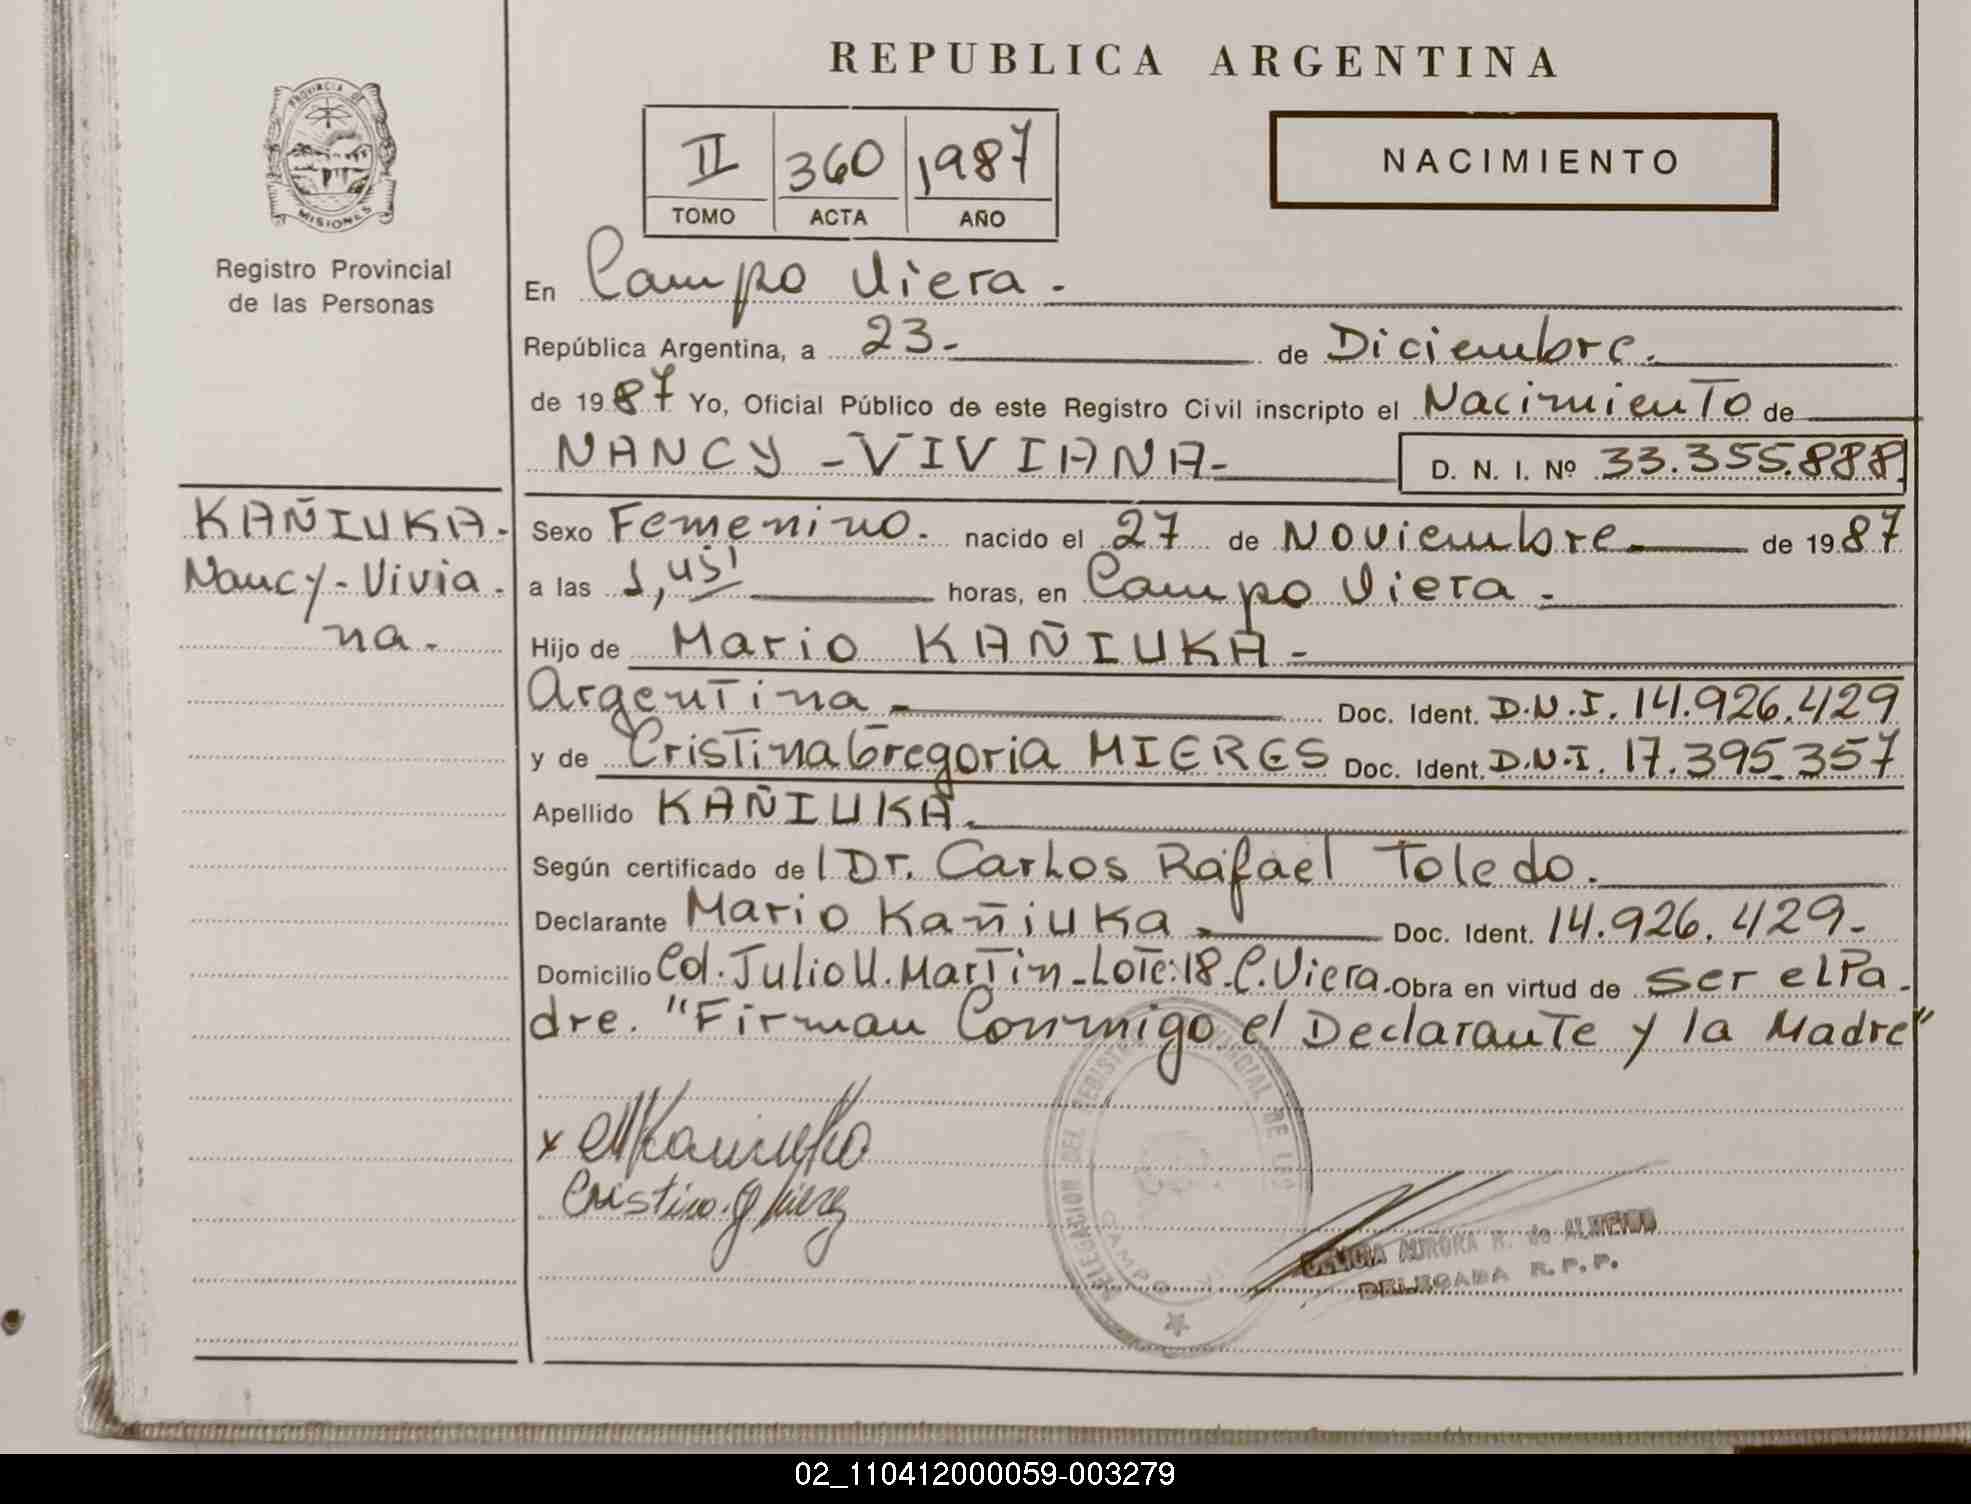 REPUBLICA ARGENTINA
PROVINCIA DE
MISIONES
Registro Provincial
de las Personas
II 360 1987
TOMO ACTA AÑO
NACIMIENTO
En Campo Viera.-
República Argentina, a 23.- de Diciembre.
de 1987 Yo, Oficial Público de este Registro Civil inscripto el Nacimiento de
NANCY-VIVIANA- D. N. I. Nº 33.355.888
KAÑIUKA.
Nancy-Vivia
na.
Sexo Femenino. nacido el 27 de Noviembre de 1987
a las 1,45' horas, en Campo Viera.
Hijo de Mario KAÑIUKA-
Argentina Doc. Ident. D.N.I. 14.926.429
y de Cristina Gregoria MIERES Doc. Ident. D.N.I. 17.395.357
Apellido KAÑIUKA.
Según certificado de l Dr. Carlos Rafael Toledo.
Declarante Mario Kañiuka Doc. Ident. 14.926.429-
Domicilio Col. Julio U. Martin-Lote:18-C.Viera. Obra en virtud de ser el Pa-
dre. "Firman Conmigo el Declarante y la Madre"
x MKañiuka
Cristina G Mierez
DELEGACION DEL REGISTRO PROVINCIAL DE LAS
CAMPO
DELICIA AURORA R. de ALMEIDA
DELEGADA R.P.P.
02_110412000059-003279